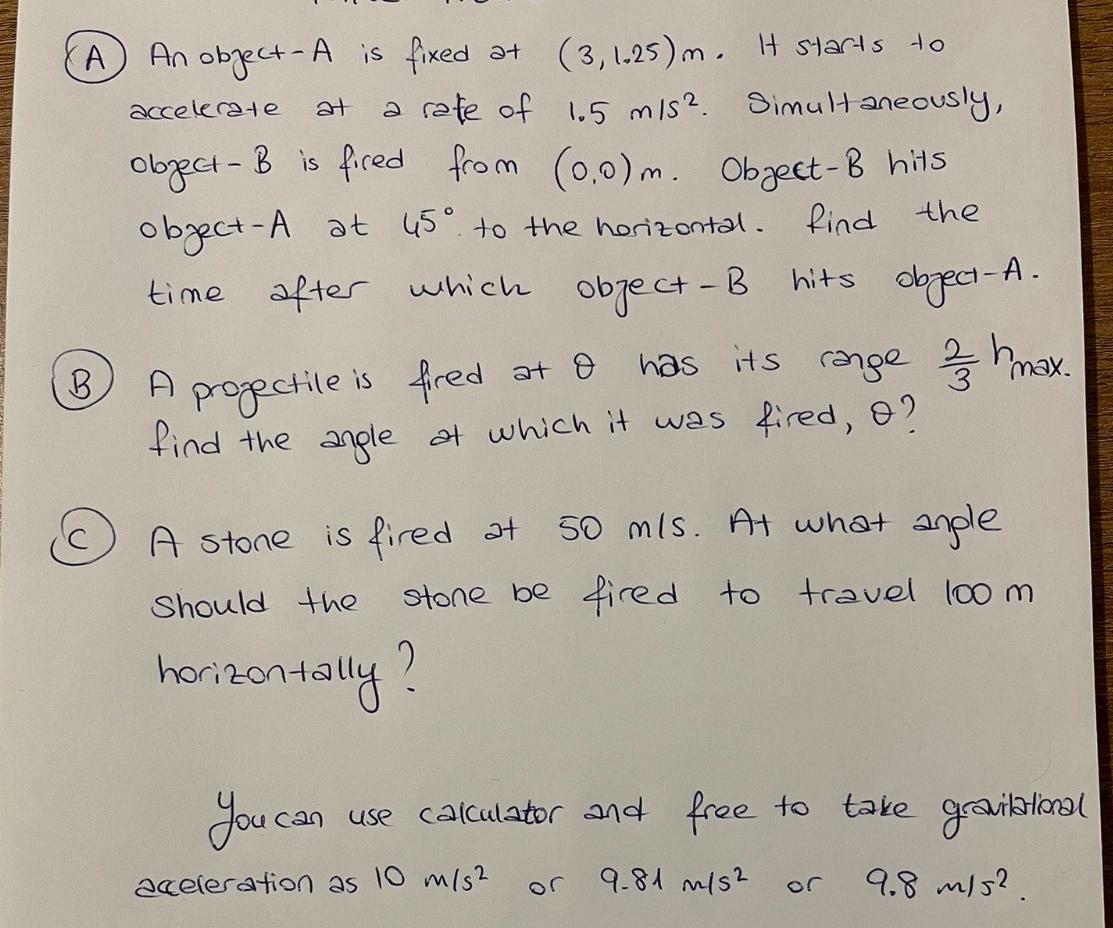 (A) An object-A is fixed at (3, 1.25) m. It starts to
accelerate at a rate of 1.5 m/s². Simultaneously,
object-B is fired from (0,0) m. Object-B hits
object-A at 45° to the horizontal. find the
time after which object-B hits object-A.
(B) A projectile is fired at θ has its range 2/3 hmax.
find the angle at which it was fired, θ?
(C) A stone is fired at 50 m/s. At what angle
should the stone be fired to travel 100 m
horizontally?
You can use calculator and free to take gravitational
acceleration as 10 m/s² or 9.81 m/s² or 9.8 m/s².